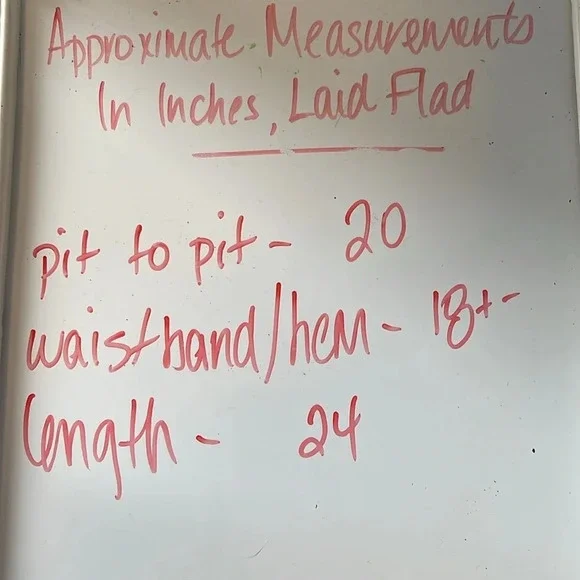 Approximate Measurements
In Inches, Laid Flad
pit to pit - 20
waistband/hem - 18+-
length - 24